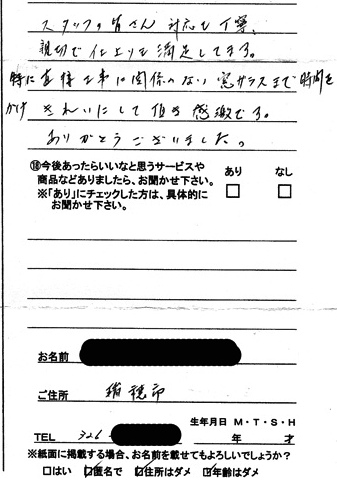 スタッフの皆さん 対応も丁寧、
親切で仕上りも満足してます。
特に直接工事に関係のない窓ガラスまで時間を
かけ きれいにして頂き感激です。
ありがとうございました。
⑱今後あったらいいなと思うサービスや
商品などありましたら、お聞かせ下さい。
※「あり」にチェックした方は、具体的に
お聞かせ下さい。
あり なし
□ □
お名前
ご住所 瑞穂市
生年月日 M・T・S・H
TEL 326- 年 才
※紙面に掲載する場合、お名前を載せてもよろしいでしょうか？
□はい ☑匿名で ☑住所はダメ ☑年齢はダメ